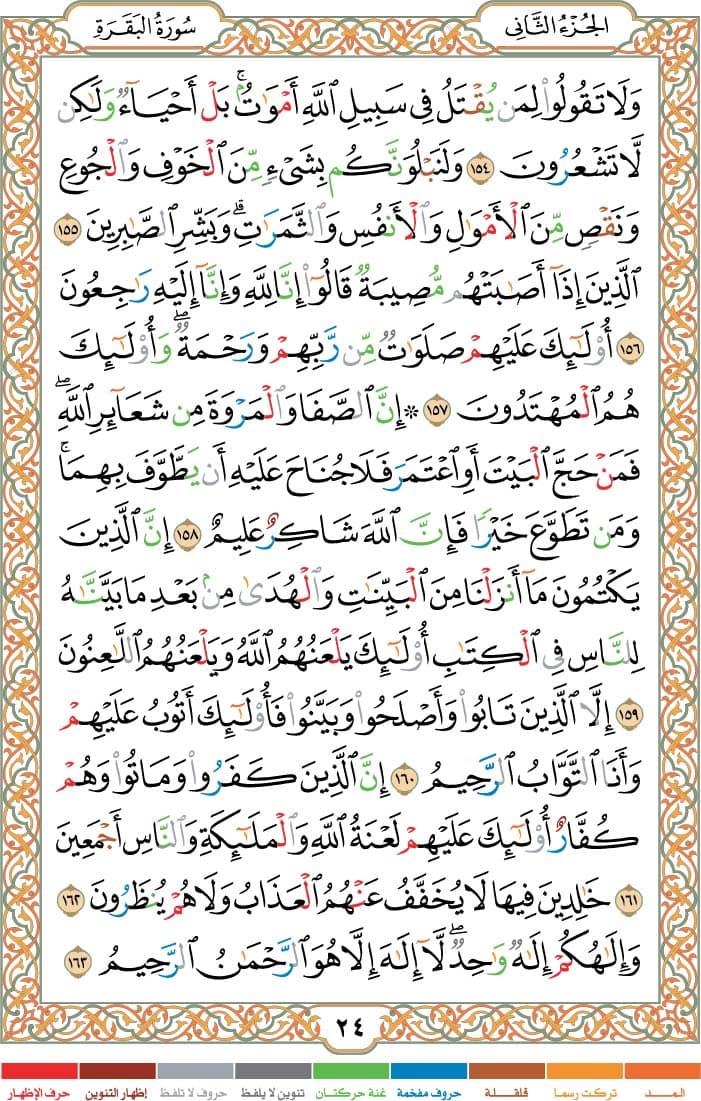 الجُزْءُ الثَّانِي
سُورَةُ البَقَرَةِ
وَلَا تَقُولُوا۟ لِمَن يُقْتَلُ فِى سَبِيلِ ٱللَّهِ أَمْوَٰتٌۢ ۚ بَلْ أَحْيَآءٌ وَلَٰكِن
لَّا تَشْعُرُونَ ١٥٤ وَلَنَبْلُوَنَّكُم بِشَىْءٍ مِّنَ ٱلْخَوْفِ وَٱلْجُوعِ
وَنَقْصٍ مِّنَ ٱلْأَمْوَٰلِ وَٱلْأَنفُسِ وَٱلثَّمَرَٰتِ ۗ وَبَشِّرِ ٱلصَّٰبِرِينَ ١٥٥
ٱلَّذِينَ إِذَآ أَصَٰبَتْهُم مُّصِيبَةٌ قَالُوٓا۟ إِنَّا لِلَّهِ وَإِنَّآ إِلَيْهِ رَٰجِعُونَ
١٥٦ أُو۟لَٰٓئِكَ عَلَيْهِمْ صَلَوَٰتٌ مِّن رَّبِّهِمْ وَرَحْمَةٌ ۖ وَأُو۟لَٰٓئِكَ
هُمُ ٱلْمُهْتَدُونَ ١٥٧ ۞ إِنَّ ٱلصَّفَا وَٱلْمَرْوَةَ مِن شَعَآئِرِ ٱللَّهِ ۖ
فَمَنْ حَجَّ ٱلْبَيْتَ أَوِ ٱعْتَمَرَ فَلَا جُنَاحَ عَلَيْهِ أَن يَطَّوَّفَ بِهِمَا ۚ
وَمَن تَطَوَّعَ خَيْرًا فَإِنَّ ٱللَّهَ شَاكِرٌ عَلِيمٌ ١٥٨ إِنَّ ٱلَّذِينَ
يَكْتُمُونَ مَآ أَنزَلْنَا مِنَ ٱلْبَيِّنَٰتِ وَٱلْهُدَىٰ مِنۢ بَعْدِ مَا بَيَّنَّٰهُ
لِلنَّاسِ فِى ٱلْكِتَٰبِ أُو۟لَٰٓئِكَ يَلْعَنُهُمُ ٱللَّهُ وَيَلْعَنُهُمُ ٱللَّٰعِنُونَ
١٥٩ إِلَّا ٱلَّذِينَ تَابُوا۟ وَأَصْلَحُوا۟ وَبَيَّنُوا۟ فَأُو۟لَٰٓئِكَ أَتُوبُ عَلَيْهِمْ
وَأَنَا ٱلتَّوَّابُ ٱلرَّحِيمُ ١٦٠ إِنَّ ٱلَّذِينَ كَفَرُوا۟ وَمَاتُوا۟ وَهُمْ
كُفَّارٌ أُو۟لَٰٓئِكَ عَلَيْهِمْ لَعْنَةُ ٱللَّهِ وَٱلْمَلَٰٓئِكَةِ وَٱلنَّاسِ أَجْمَعِينَ
١٦١ خَٰلِدِينَ فِيهَا لَا يُخَفَّفُ عَنْهُمُ ٱلْعَذَابُ وَلَا هُمْ يُنظَرُونَ ١٦٢
وَإِلَٰهُكُمْ إِلَٰهٌ وَٰحِدٌ ۖ لَّآ إِلَٰهَ إِلَّا هُوَ ٱلرَّحْمَٰنُ ٱلرَّحِيمُ ١٦٣
٢٤
المـــد تركت رسما قلقـلة حروف مفخمة غنة حركتان تنوين لا يلفظ حروف لا تلفظ إظهار التنوين حرف الإظهار